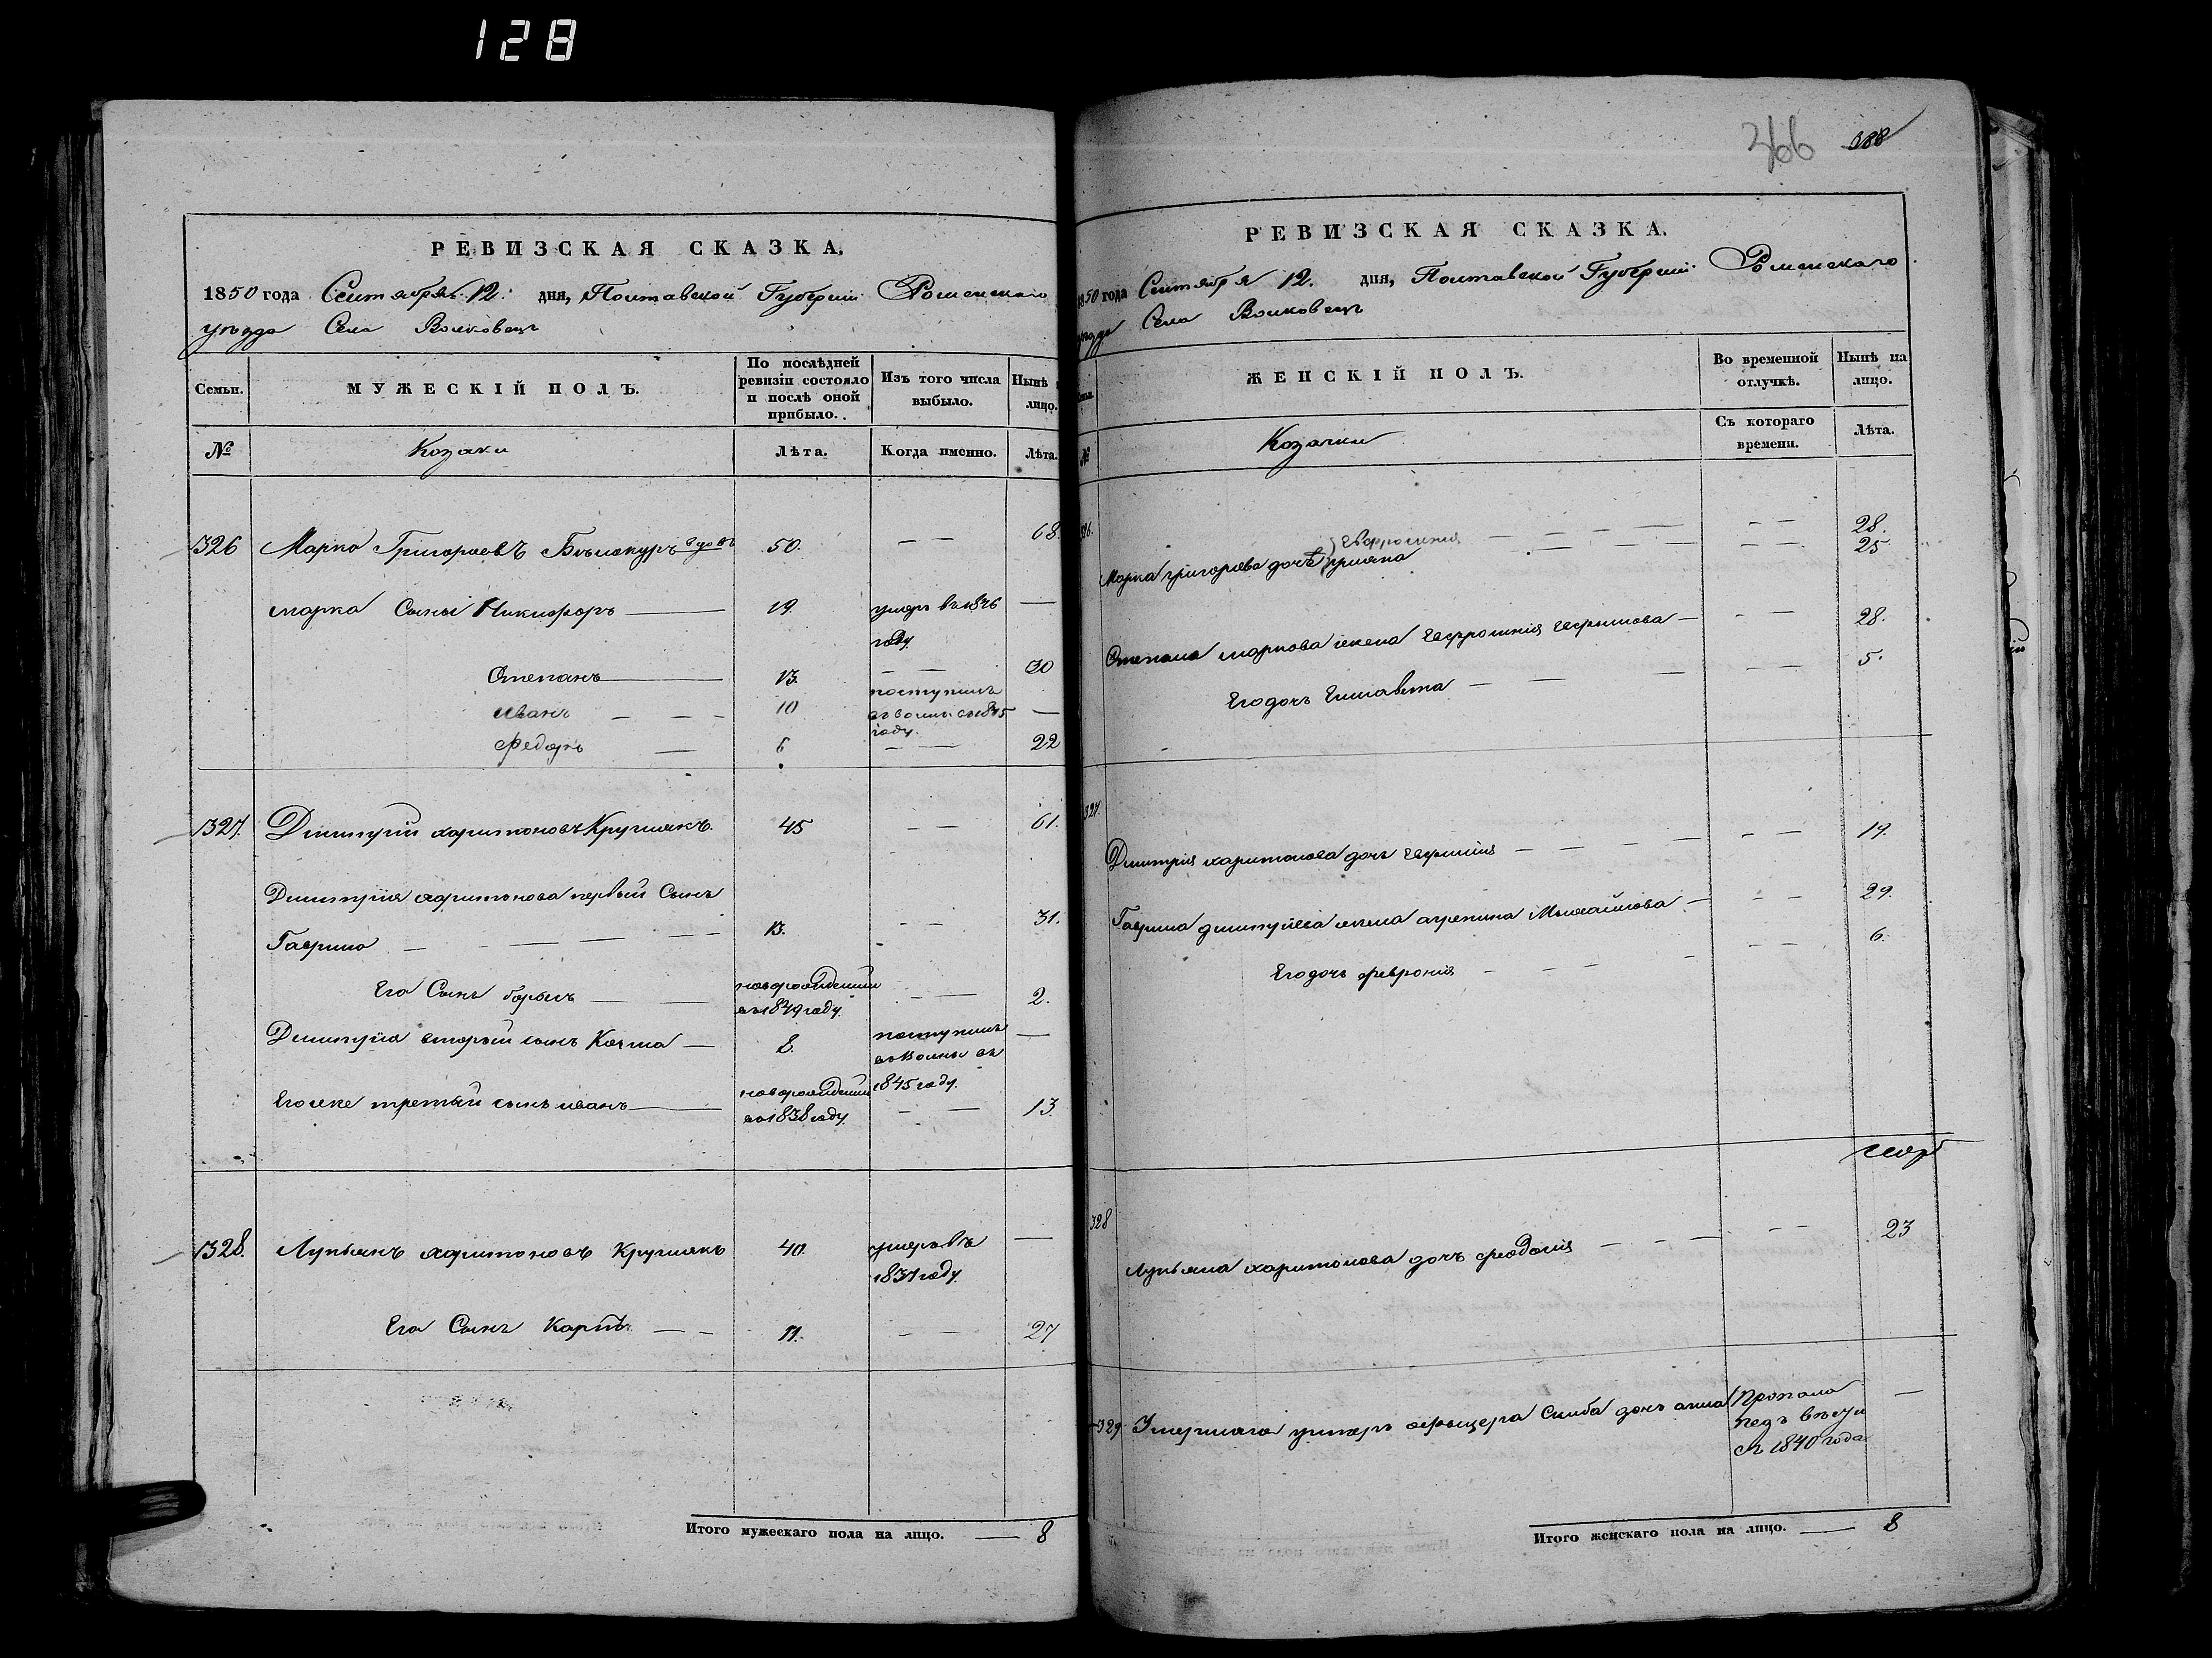 128
366 388
РЕВИЗСКАЯ СКАЗКА.
1850 года Сентября 12. дня, Полтавской Губернии Роменскаго
уезда Села Волковецъ
Семьи. МУЖЕСКІЙ ПОЛЪ. По послѣдней ревизіи состояло и послѣ оной прибыло. Изъ того числа выбыло. Нынѣ лицо.
№ Козаки Лѣта. Когда именно. Лѣта.
326 Марко Григорьевъ Бѣлокуръ вдовъ 50. — — 68.
Марка Сыны Никифоръ — 19. умеръ въ 1846 году —
Степанъ — 13. — — 30
Иванъ — — — 10 поступилъ въ 1845 году —
Федоръ — 6 — — 22
327. Димитрій Харитоновъ Круглякъ. 45 — — 61.
Димитрия Харитонова первый Сынъ
Гаврило — — — — 13. — — 31.
Его Сынъ Борысъ — новорожденный въ 1849 году. — — 2.
Димитрія вторый сынъ Козма — 8. поступилъ въ 1845 году. —
Его же третый сынъ Иванъ — новорожденный въ 1838 году. — — 13.
328. Лукьянъ Харитоновъ Круглякъ 40. умеръ въ 1837 году. —
Его Сынъ Карпъ — — 11. — — 27
Итого мужескаго пола на лицо. — 8
РЕВИЗСКАЯ СКАЗКА.
1850 года Сентября 12. дня, Полтавской Губерніи Роменскаго
уезда Села Волковецъ
ЖЕНСКІЙ ПОЛЪ. Во временной отлучкѣ. Нынѣ на лицо.
№ Козачки Съ котораго времени. Лѣта.
326. Евфросинія — — — — — 28.
Марка Григорьева дочь — — — — — 25
Степана Маркова жена Евфросинія Евфимова — — — 28.
Его дочь Елисавета — — — — — 5.
327. Димитрія Харитонова дочь Евфимія — — — — — — 19.
Гаврила Димитріева жена Агрепина Михайлова — — — 29.
Его дочь Феврония — — — — — — 6.
328 Лукьяна Харитонова дочь Феодосія — — — — — 23
329. Умершаго унтеръ офыцера Скиба дочь Анна Пропала безъ вѣсти съ 1840 года —
Итого женскаго пола на лицо. — 8